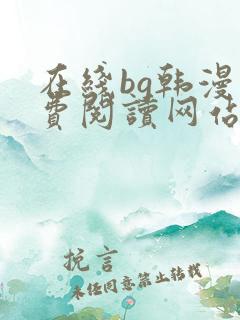 在线bg韩漫
费阅读网佔
挽言
未经同意禁止转载